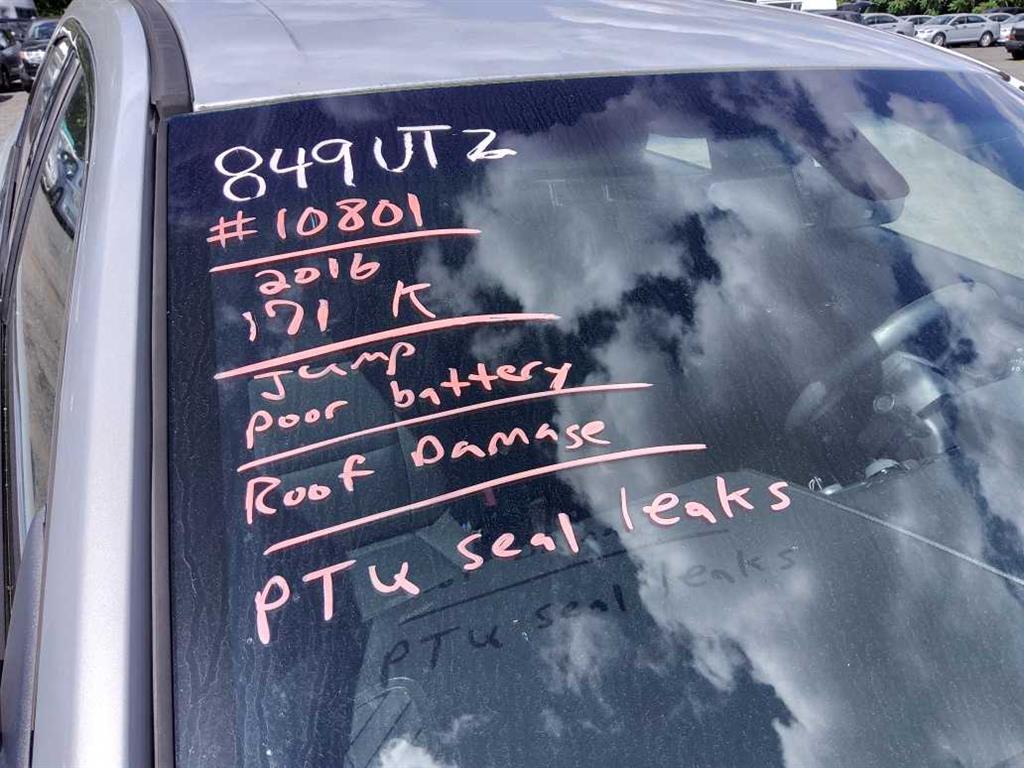 849UTZ
#10801
2016
171 K
Jump
poor battery
Roof Damage
PTU seal leaks